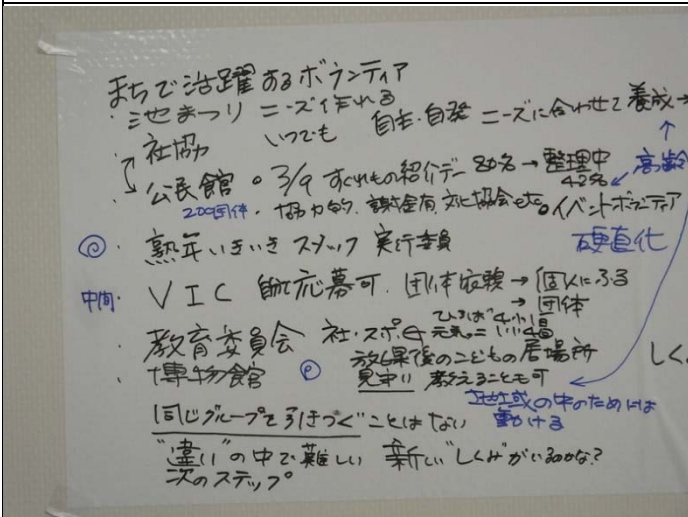 まちで活躍するボランティア
・三池まつり ニーズ作れる
いつでも 自主・自発 ニーズに合わせて養成→
・社協
・公民館 ○ 3/9 すぐれもの紹介デー 80名→整理中 高齢
42名
200団体 ・協力的、謝金有、文化協会も イベントボランティア
硬直化
◎・熟年いきいきスタッフ 実行委員
中間・VIC 応募可、団体依頼→個人にふる
→団体
・教育委員会 社・スポ
・博物館 放課後のこどもの居場所
見守り 教えることも可
地域の中のためには
動ける
同じグループを引きつぐことはない
"違い"の中で難しい 新しい"しくみ"がいるのかな?
次のステップ
しく